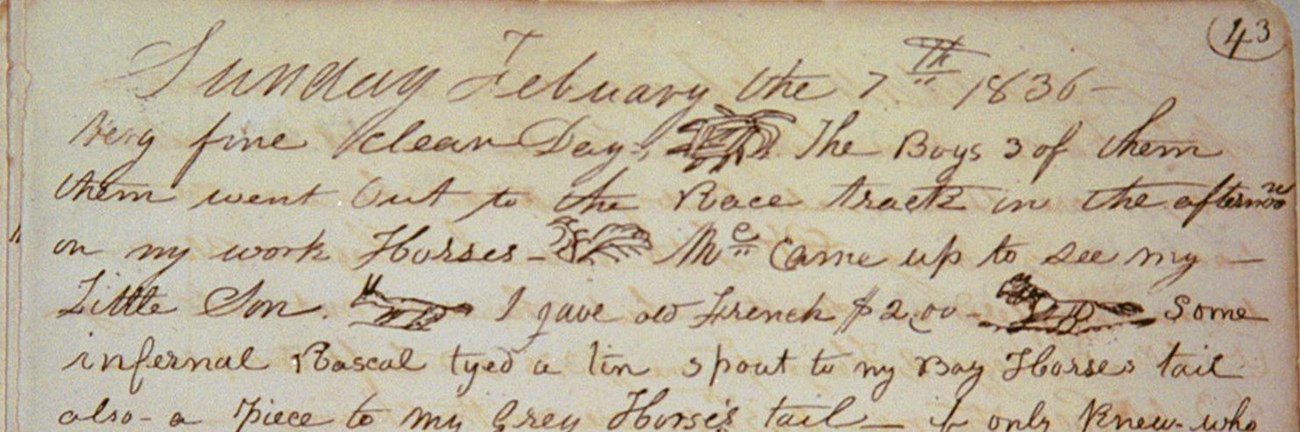 43
Sunday Febuary the 7th 1836 -
Very fine clear Day. The Boys 3 of them
them went out to the Race track in the afternoo
on my work Horses - Mc Came up to see my -
Little Son. I gave old French $2,00 - Some
infernal Rascal tyed a tin spout to my Bay Horses tail
also - a Piece to my Grey Horse's tail - if only Knew - who